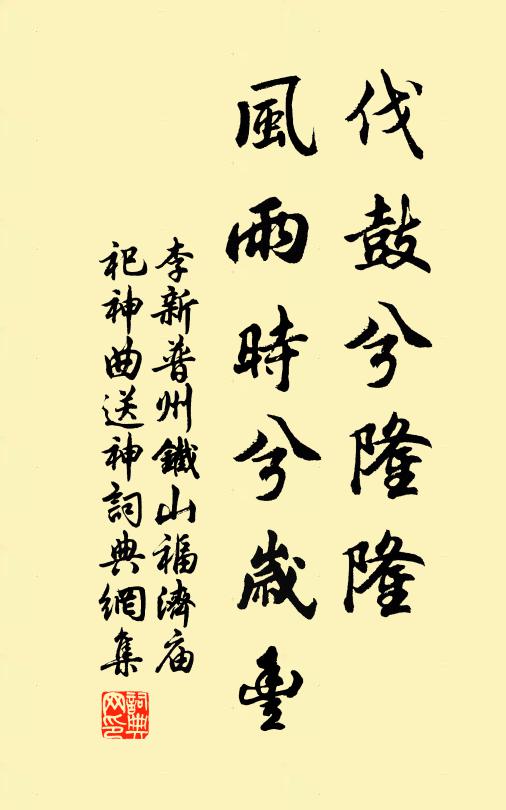 伐鼓兮隆隆
風雨時兮歲豐
李新普州鐵山福濟庙
祀神曲送神詞典網集
詞典网印